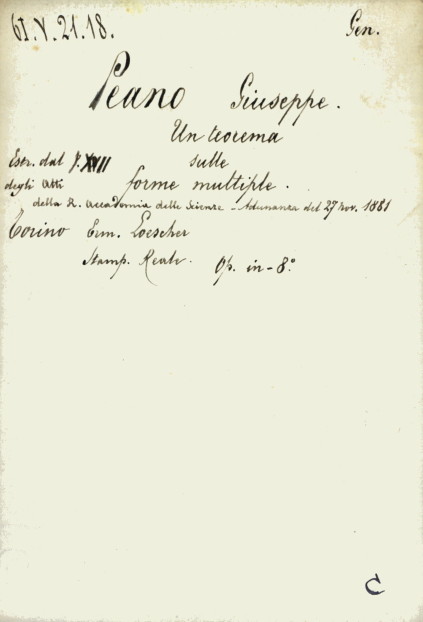 61.V.21.18. Gen.
Peano Giuseppe.
Un teorema
Estr. dal V. XVII sulle
degli Atti forme multiple.
della R. Accademia delle Scienze - Adunanza del 27 Nov. 1881
Torino Erm. Loescher
Stamp. Reale. Op. in-8.°
C